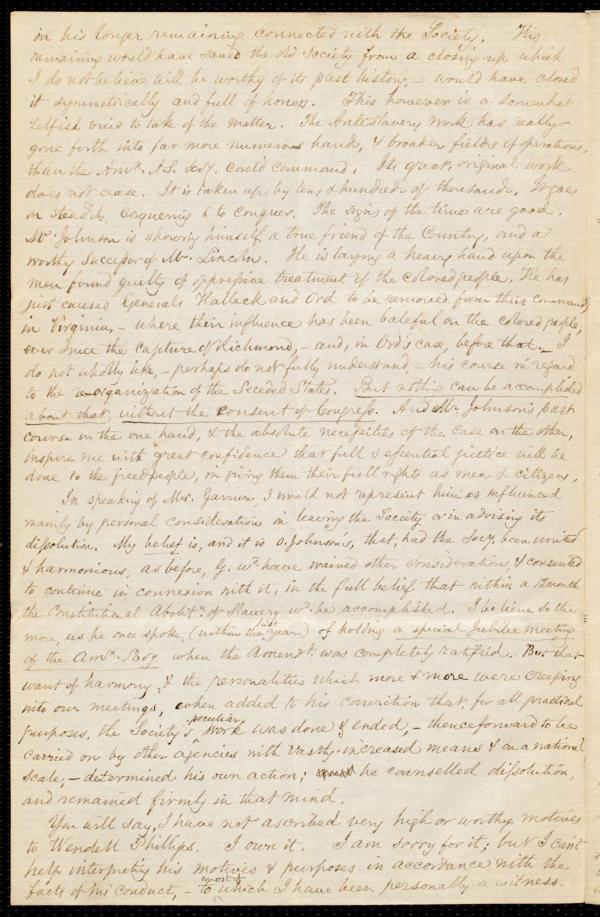 in his longer remaining connected with the Society. His
remaining would have saved the old Society from a closing up which
I do not believe will be worthy of its past history, – would have closed
it symmetrically and full of honors. This however is a somewhat
selfish view to take of the matter. The Antislavery Work has really
gone forth into far more numerous hands, & broader fields of operations,
than the Amn. A.S. Socy. could command. Its great, original work
does not cease. It is taken up by tens & hundreds of thousands. It goes
on steadily, conquering & to conquer. The signs of the times are good.
Mr. Johnson is showing himself a true friend of the Country, and a
worthy successor of Mr. Lincoln. He is laying a heavy hand upon the
men found guilty of oppressive treatment of the colored people. He has
just caused Generals Halleck and Ord to be removed from their commands
in Virginia, – where their influence has been baleful on the colored people,
ever since the capture of Richmond, – and, in Ord's case, before that. – I
do not wholly like, – perhaps do not fully understand, – his course in regard
to the re-organization of the Seceded States. But nothing can be accomplished
about that, without the consent of Congress. And Mr. Johnson's past
course on the one hand, & the absolute necessities of the case on the other,
inspire me with great confidence that full & essential justice will be
done to the freedpeople, in giving them their full rights as men & citizens.
In speaking of Mr. Garrison, I would not represent him as influenced
mainly by personal considerations in leaving the Society or in advising its
dissolution. My belief is, and it is O. Johnson's, that, had the Socy. been united
& harmonious, as before, G. wd. have waived other considerations, & consented
to continue in connexion with it, in the full belief that within a 12month
the Constitutional Abolitn. of Slavery wd. be accomplished. I believe so the
more, as he once spoke, (within the last year) of holding a special Jubilee meeting
of the Amn. Socy. when the Amendt. was completely ratified. But that
want of harmony, & the personalities which more & more were creeping
into our meetings, when added to his conviction that, for all practical
purposes, the Society's peculiar work was done & ended, – thenceforward to be
carried on by other agencies with vastly-increased means & on a national
scale, – determined his own action; he counselled dissolution,
and remained firmly in that mind.
You will say, I have not ascribed very high or worthy motives
to Wendell Phillips. I own it. I am sorry for it; but I can't
help interpreting his motives & purposes in accordance with the
facts of his conduct, – to most of which I have been personally a witness.